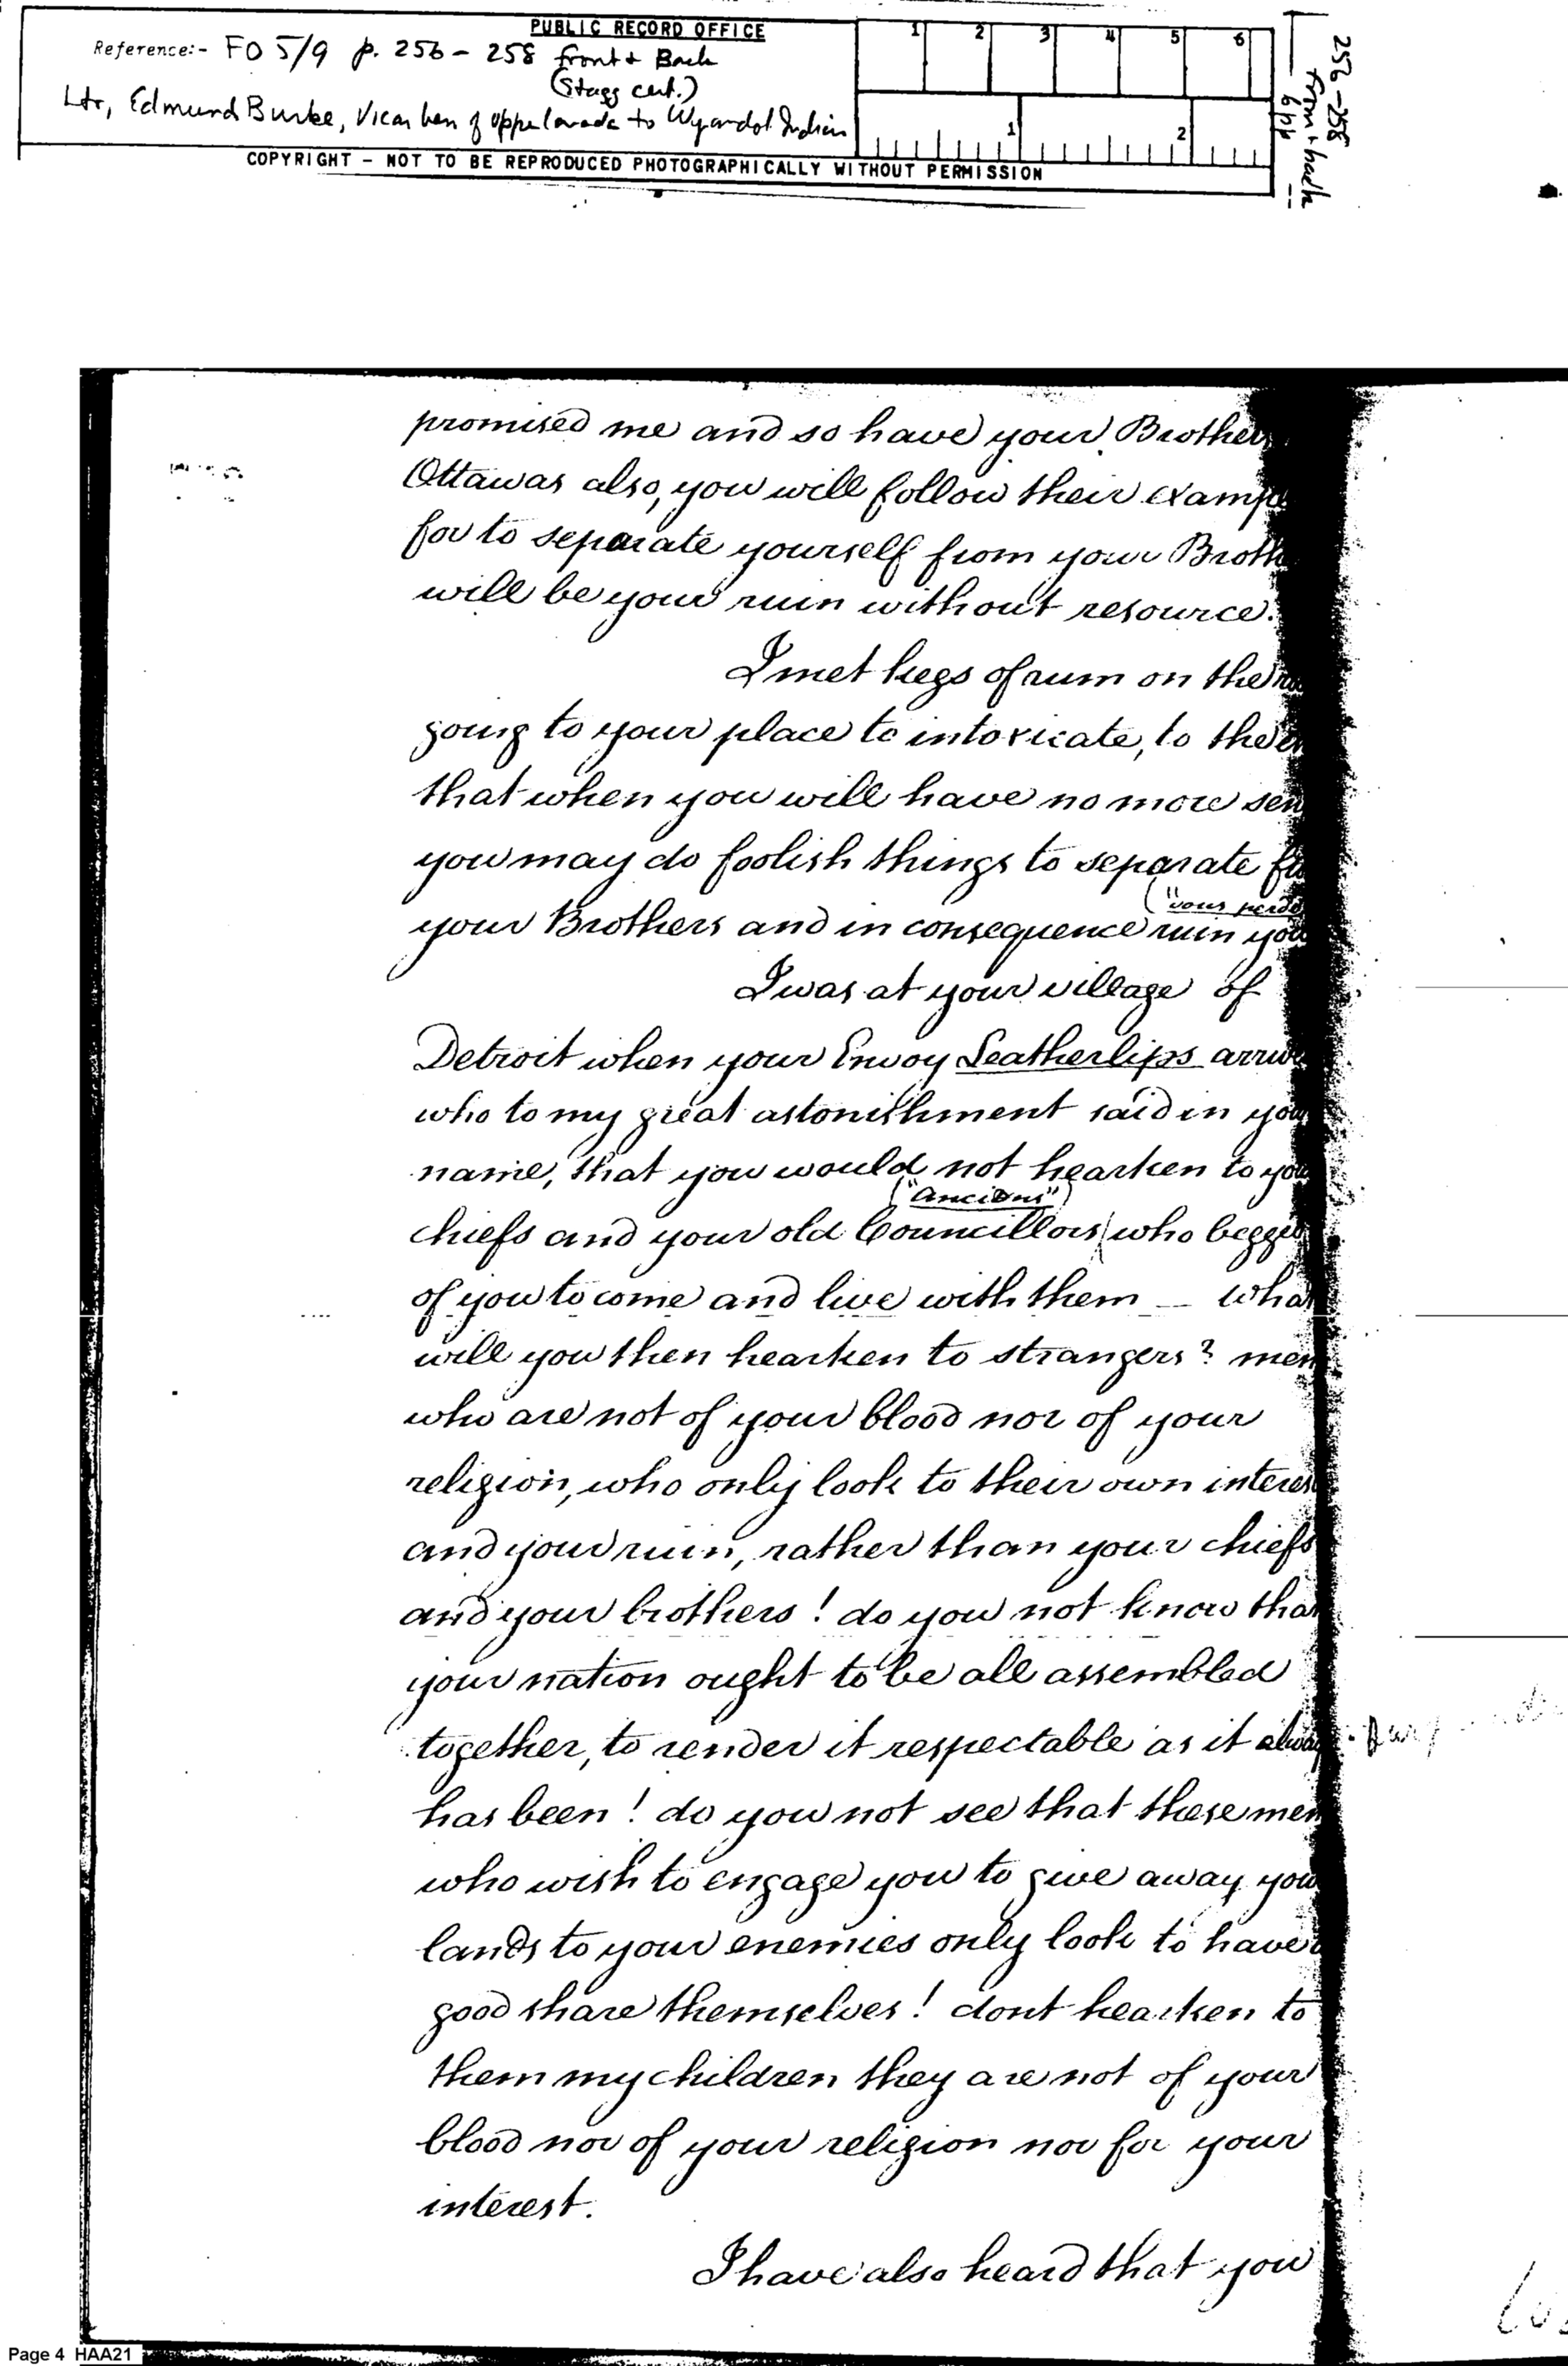 PUBLIC RECORD OFFICE
Reference:- FO 5/9 p. 256 - 258 front & Back
(Stagg cert.)
Ltr, Edmund Burke, Vicar Gen of upper Canada to Wyandot Indian
1 2 3 4 5 6
1 2
COPYRIGHT - NOT TO BE REPRODUCED PHOTOGRAPHICALLY WITHOUT PERMISSION
256-258
front & back
6pp
promised me and so have your Brother
Ottawas also, you will follow their examp
for to separate yourself from your Broth
will be your ruin without resource.
I met kegs of rum on the
going to your place to intoxicate, to the
that when you will have no more sen
you may do foolish things to separate
("vous perd
your Brothers and in consequence ruin you
I was at your village of
Detroit when your Envoy Leatherlips arriv
who to my great astonishment said in you
name, that you would not hearken to you
("anciens")
chiefs and your old Councillors who begge
of you to come and live with them — what
will you then hearken to strangers? men
who are not of your blood nor of your
religion, who only look to their own interes
and your ruin, rather than your chiefs
and your brothers! do you not know that
your nation ought to be all assembled
together, to render it respectable as it alway
has been! do you not see that these men
who wish to engage you to give away you
lands to your enemies only look to have
good share themselves! dont hearken to
them my children they are not of your
blood nor of your religion nor for your
interest.
I have also heard that you
Page 4 HAA21